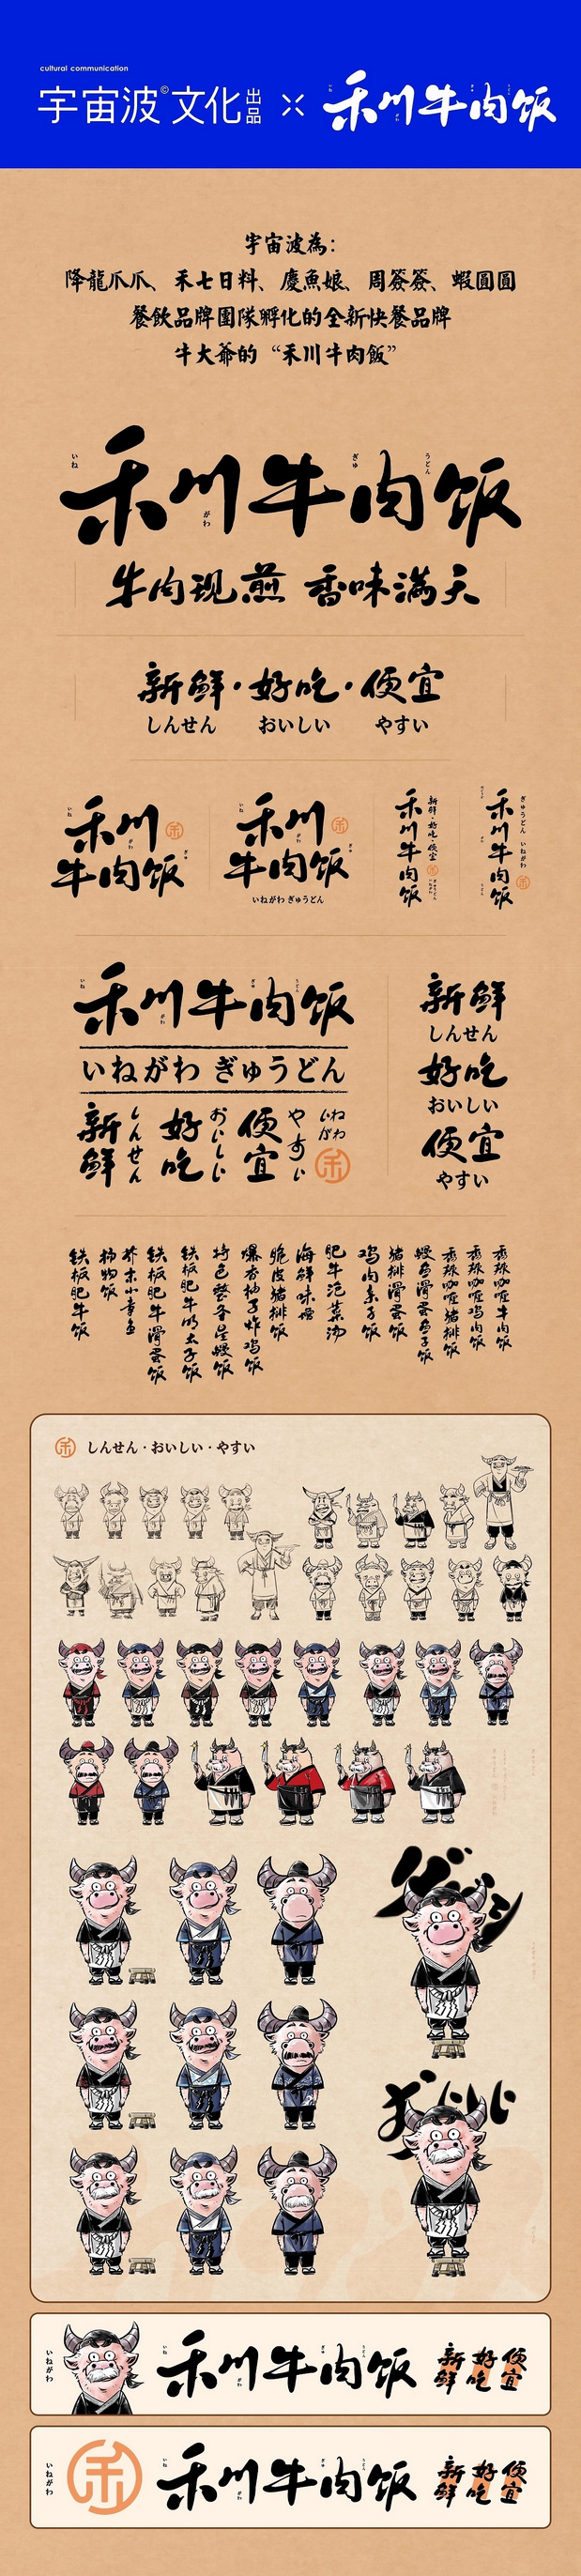 cultural communication
宇宙波©文化出品 × 禾川牛肉饭
宇宙波為：
降龍爪爪、禾七日料、慶魚娘、周簽簽、蝦圓圓
餐飲品牌團隊孵化的全新快餐品牌
牛大爺的“禾川牛肉飯”
いね
がわ
ぎゅ
うどん
禾川牛肉饭
牛肉现煎 香味满天
新鲜·好吃·便宜
しんせん おいしい やすい
禾川
牛肉饭
禾
禾川
牛肉饭
禾
いねがわ ぎゅうどん
禾川牛肉饭
新鲜·好吃·便宜
禾
禾川牛肉饭
ぎゅうどん いねがわ
禾
禾川牛肉饭
いねがわ ぎゅうどん
新鲜 しんせん
好吃 おいしい
便宜 やすい
いねがわ
禾
新鲜
しんせん
好吃
おいしい
便宜
やすい
铁板肥牛饭
芥末小章鱼
铁板肥牛滑蛋饭
铁板肥牛明太子饭
特色整条星鳗饭
爆杏柚子炸鸡饭
脆皮猪排饭
海鲜味噌
肥牛泡菜汤
鸡肉亲子饭
猪排滑蛋饭
鳗鱼滑蛋鱼子饭
秀珍咖喱猪排饭
秀珍咖喱鸡肉饭
秀珍咖喱牛肉饭
禾 しんせん·おいしい·やすい
おいしい
いねがわ
禾川牛肉饭
新鲜 好吃 便宜
いねがわ
禾
禾川牛肉饭
新鲜 好吃 便宜